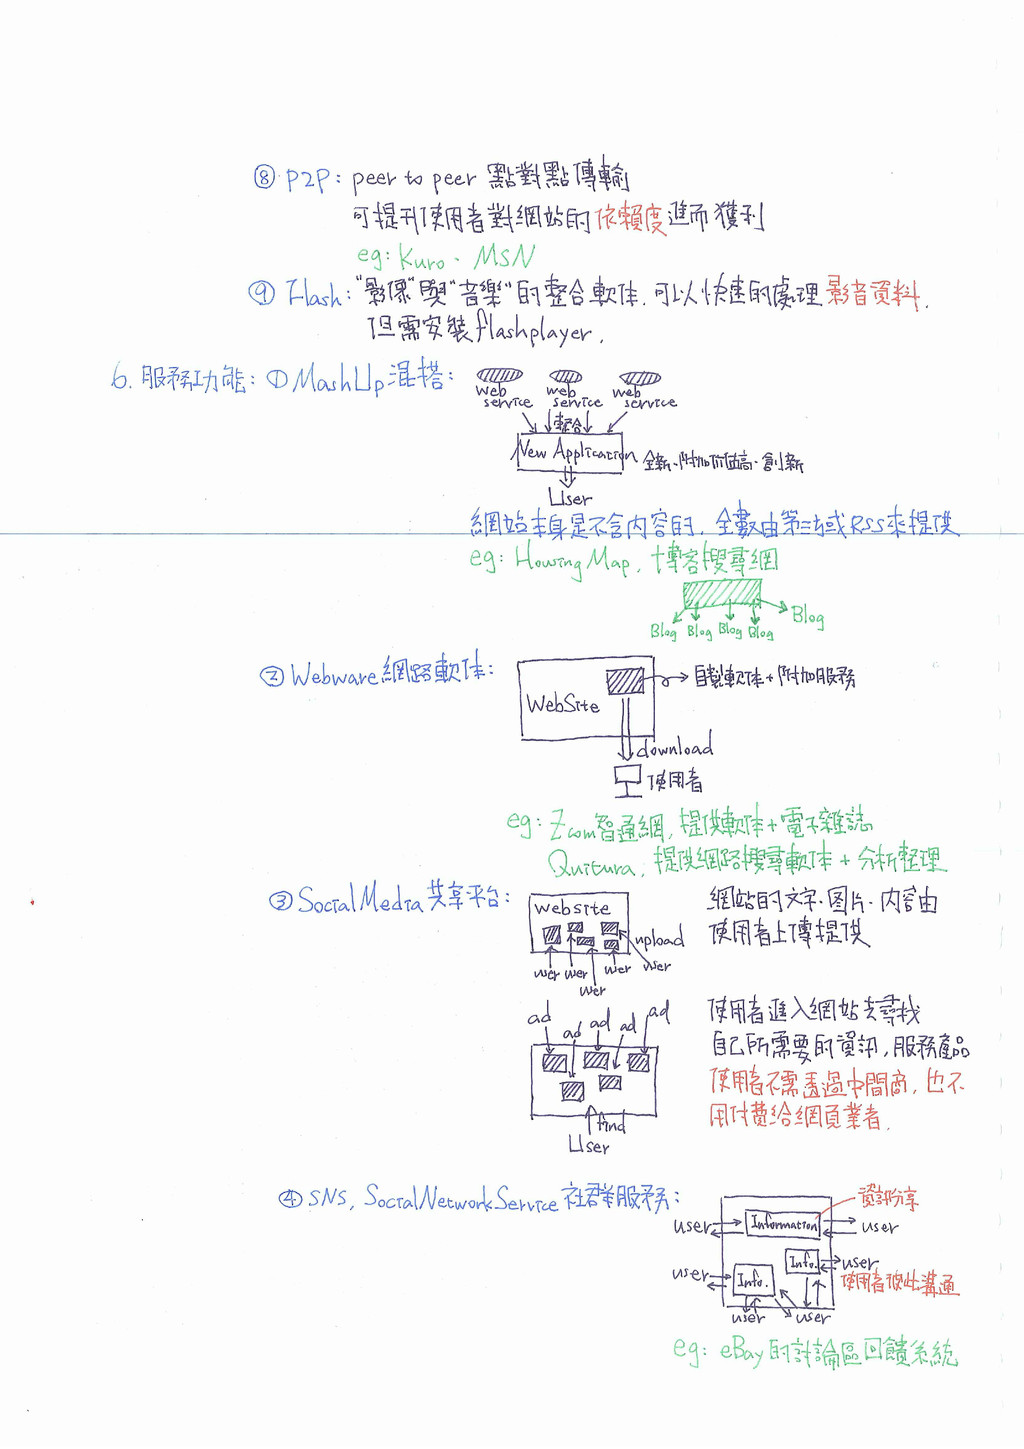 ⑧ P2P: peer to peer 點對點傳輸
可提升使用者對網站的依賴度進而獲利
eg: Kuro、MSN
⑨ Flash: "影像"與"音樂"的整合軟体.可以快速的處理影音資料.
但需安裝flashplayer.
6. 服務功能: ① MashUp混搭:
web service
web service
web service
整合
New Application
全新、附加價值高、創新
User
網站本身是不含內容的, 全數由第三方或RSS來提供
eg: Howing Map, 博客搜尋網
Blog
Blog Blog Blog Blog
② Webware網路軟体:
WebSite
自製軟体+附加服務
download
使用者
eg: Zcom智通網, 提供軟体+電子雜誌
Quitura, 提供網路搜尋軟体+分析整理
③ Social Media共享平台:
website
upload
user user user user
user
網站的文字、图片、內容由
使用者上傳提供
ad ad ad ad ad
find
User
使用者進入網站去尋找
自己所需要的資訊,服務產品
使用者不需透過中間商, 也不
用付費給網頁業者.
④ SNS, Social Network Service 社群服務:
資訊分享
user Information user
Info. user
user Info.
使用者彼此溝通
user user
eg: eBay的討論區回饋系統